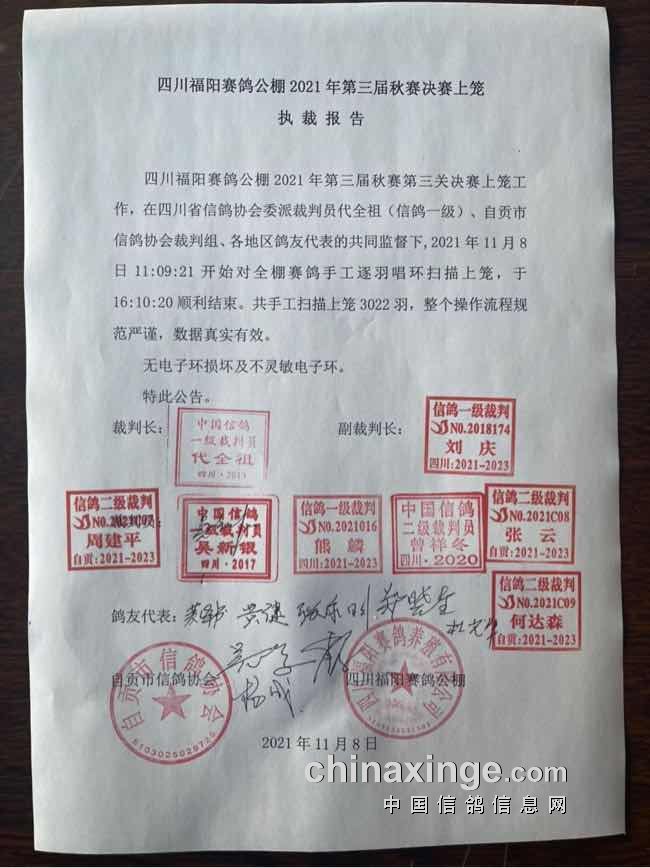 四川福阳赛鸽公棚 2021 年第三届秋赛决赛上笼
执 裁 报 告
四川福阳赛鸽公棚 2021 年第三届秋赛第三关决赛上笼工
作，在四川省信鸽协会委派裁判员代全祖（信鸽一级）、自贡市
信鸽协会裁判组、各地区鸽友代表的共同监督下,2021 年 11 月 8
日 11:09:21 开始对全棚赛鸽手工逐羽唱环扫描上笼，于
16:10:20 顺利结束。共手工扫描上笼 3022 羽，整个操作流程规
范严谨，数据真实有效。
无电子环损坏及不灵敏电子环。
特此公告。
裁判长：
中国信鸽
一级裁判员
代全祖
四川·2013
副裁判长：
信鸽一级裁判
NO.2018174
刘 庆
四川:2021-2023
信鸽二级裁判
周建平
自贡:2021-2023
中国信鸽
二级裁判员
吴新银
四川·2017
信鸽一级裁判
NO.2021016
熊 麟
四川:2021-2023
中国信鸽
二级裁判员
曾祥冬
四川·2020
信鸽二级裁判
NO.2021C08
张 云
自贡:2021-2023
信鸽二级裁判
NO.2021C09
何达森
自贡:2021-2023
鸽友代表：
自贡市信鸽协会
四川福阳赛鸽公棚
自贡市信鸽协会
2021 年 11 月 8 日
chinaxinge.com
中国信鸽信息网